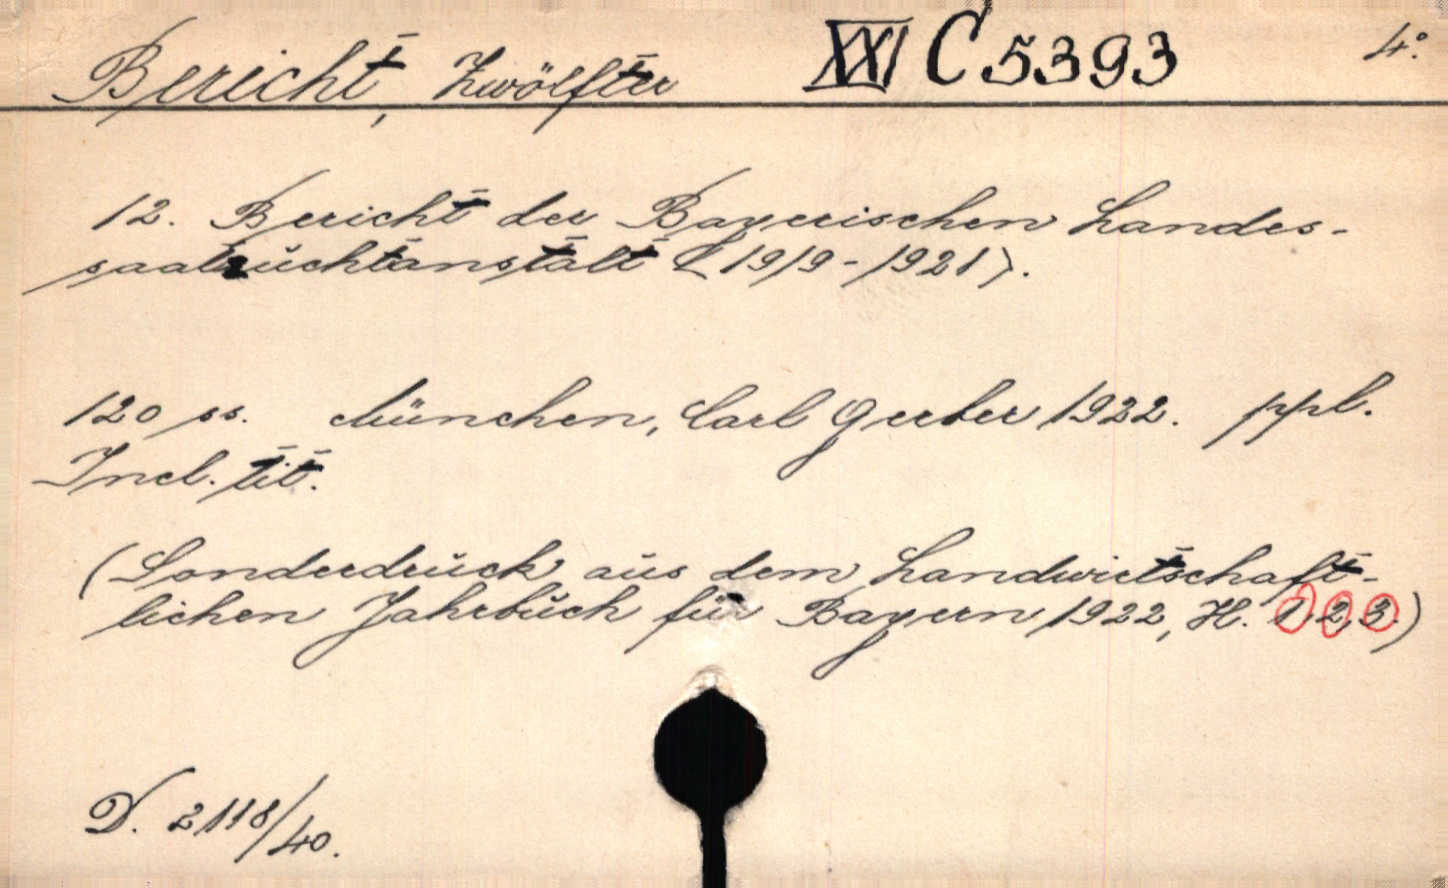 Bericht, Zwölfter XXI C 5393 4°.
12. Bericht der Bayerischen Landes-
saatzuchtanstalt <1919-1921>.
120 ss. München, Carl Gerber 1922. ppl.
Incl. tit.
(Sonderdruck aus dem Landwirtschaft-
lichen Jahrbuch für Bayern 1922, H. 1, 2, 3.)
D. 2118/40.